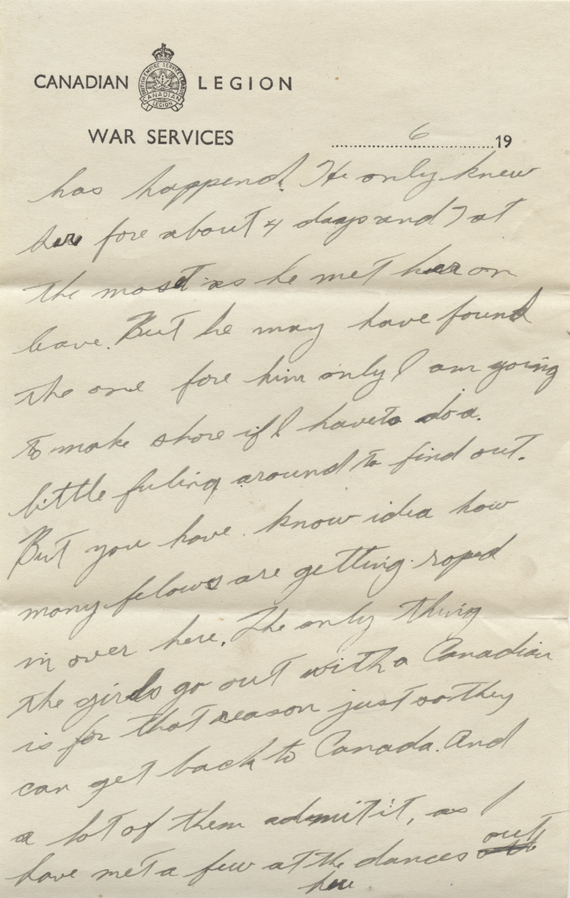 CANADIAN LEGION
WAR SERVICES
6 19
has happend. He only knew
her fore about 4 days and 7 at
the most as he met her on
leave. But he may have found
the one fore him only I am going
to make shore if I have to do a
little fuling around to find out.
But you have know idea how
many felows are getting roped
in over here. The only thing
the girls go out with a Canadian
is for that reason just so they
can get back to Canada. And
a lot of them admit it, as I
have met a few at the dances out
here